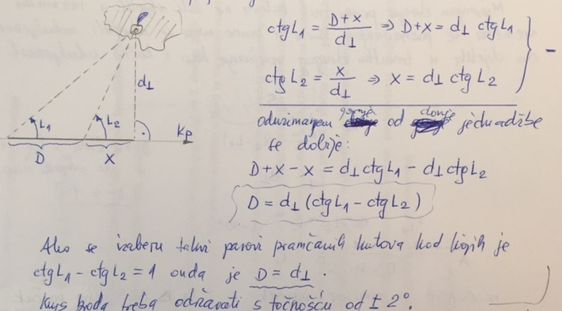 ctgL₁ = D+x / d⊥ ⇒ D+x = d⊥ ctgL₁
ctgL₂ = x / d⊥ ⇒ x = d⊥ ctgL₂
-
d⊥
L₁
L₂
Kp
D
X
oduzimanjem gornje od donje jednadžbe
se dobije:
D+x-x = d⊥ctgL₁ - d⊥ctgL₂
D = d⊥ (ctgL₁ - ctgL₂)
Ako se izaberu takvi parovi pramčanih kutova kod kojih je
ctgL₁ - ctgL₂ = 1 onda je D = d⊥.
Kurs broda treba održavati s točnošću od ± 2°.